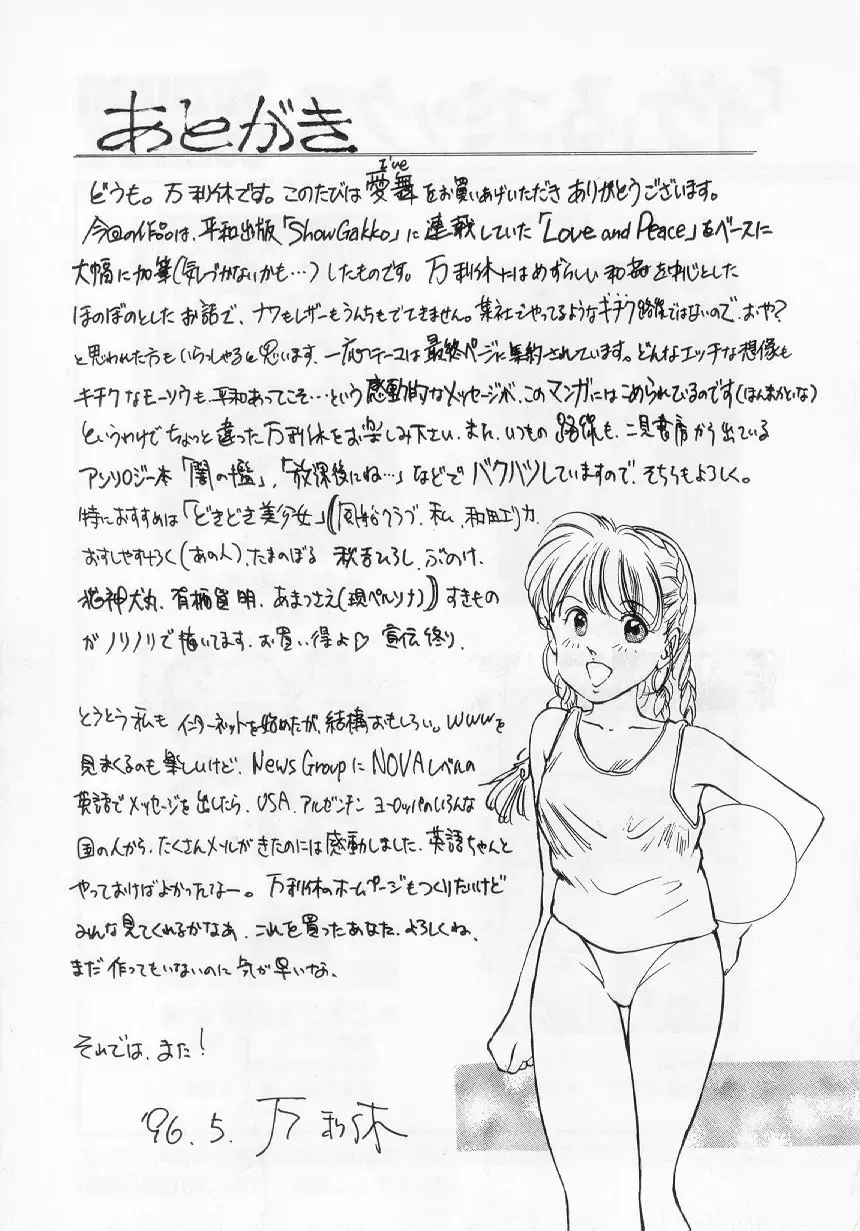 あとがき
I've
どうも。万利休です。このたびは愛舞をお買いあげいただきありがとうございます。
今回の作品は、平和出版「Show Gakko」に連載していた「Love and Peace」をベースに
大幅に加筆(気づかないかも…)したものです。万利休にはめずらしい和姦を中心とした
ほのぼのとしたお話で、ナワもレザーもうんちもでてきません。某社でやってるようなキチク路線ではないので、おや?
と思われた方もいらっしゃると思います、一応テーマは最終ページに集約されています。どんなエッチな想像も
キチクなモーソウも、平和あってこそ…という感動的なメッセージが、このマンガにはこめられているのです(ほんまかいな)
というわけでちょっと違った万利休をお楽しみ下さい、また、いつもの路線も、二見書房から出ている
アンソロジー本「闇の檻」,「放課後にね…」などでバクハツしていますので、そちらもよろしく。
特におすすめは「どきどき美少女」(風船クラブ、私、和田エリカ、
おすしやすすろく(あの人)、たまのぼる 秋吉ひろし、ぶのけ、
猫神犬丸、有柄 明、あまつさえ(現ペルソナ))すきもの
がノリノリで描いてます、お買い得よ♡ 宣伝終り、
とうとう私もインターネットを始めたが、結構おもしろい。WWWを
見まくるのも楽しいけど、News GroupにNOVAレベルの
英語でメッセージを出したら、USA、アルゼンチン ヨーロッパのいろんな
国の人から、たくさんメールがきたのには感動しました、英語ちゃんと
やっておけばよかったなー。万利休のホームページもつくりたいけど
みんな見てくれるかなあ、これを買ったあなた、よろしくね、
まだ作ってもいないのに気が早いな、
それでは、また!
'96.5. 万利休